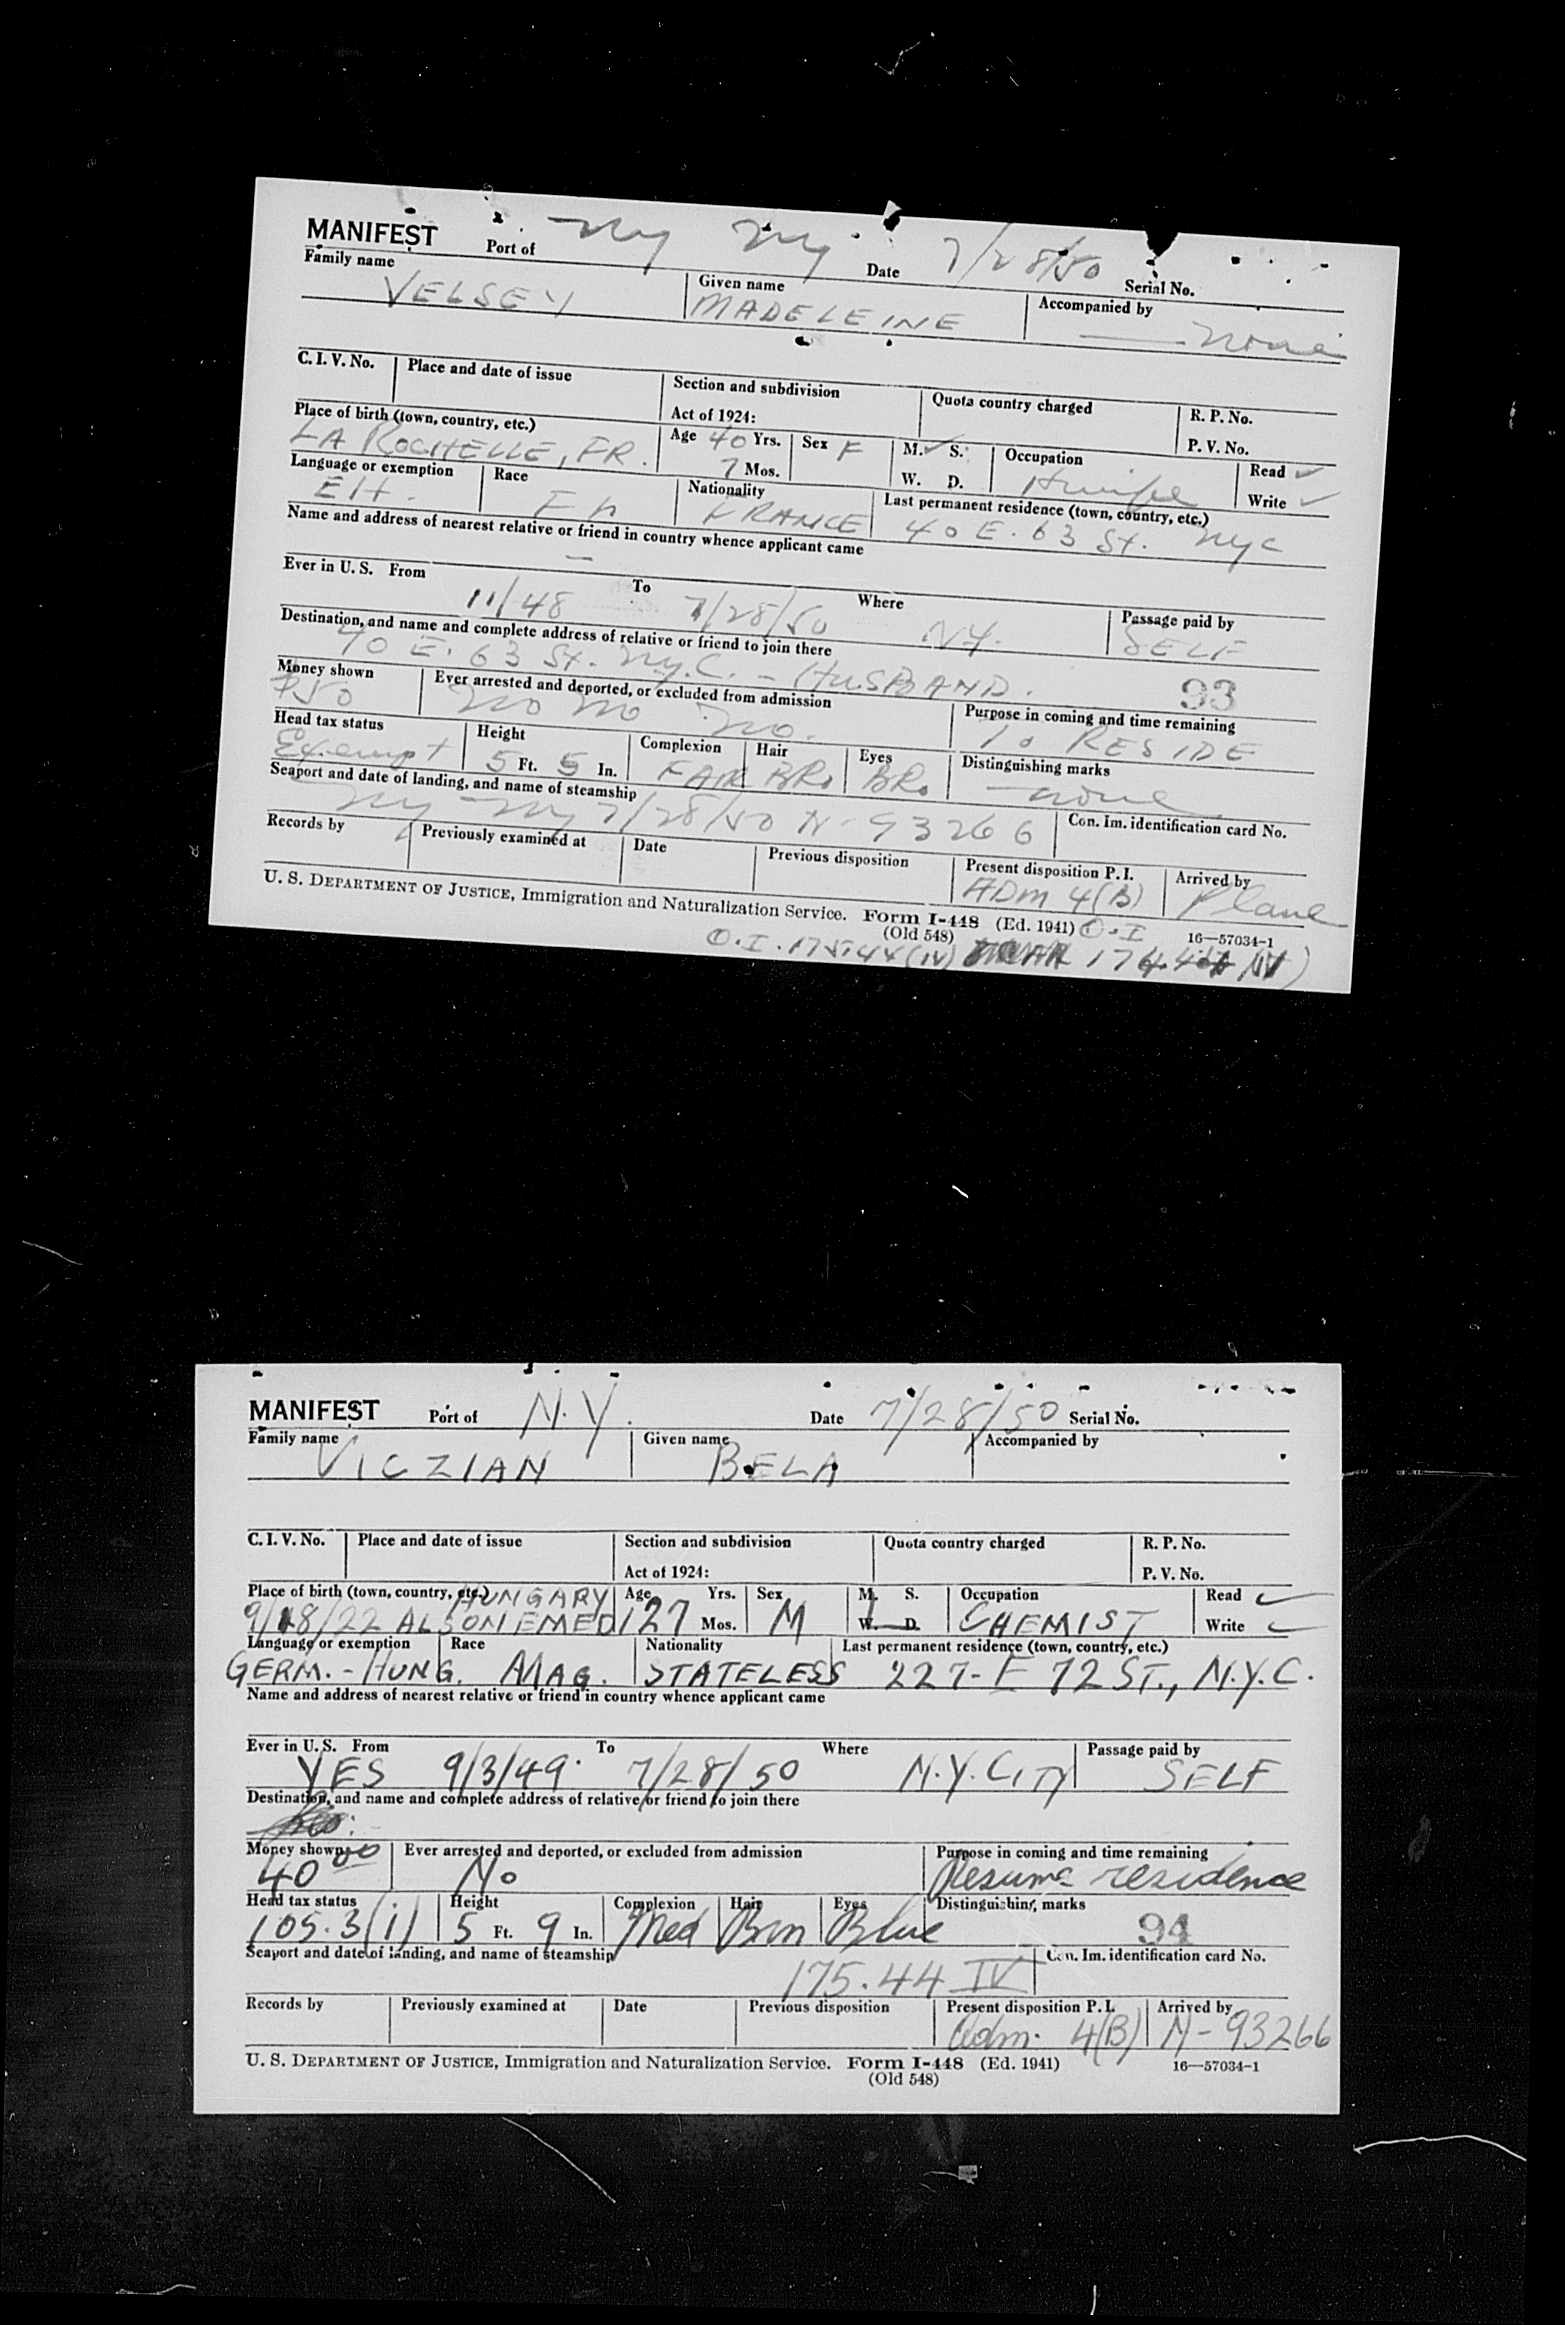 MANIFEST Port of Ny Ny. Date 7/28/50 Serial No.
Family name VELSEY Given name MADELEINE Accompanied by — none
C. I. V. No. Place and date of issue Section and subdivision Quota country charged R. P. No.
Act of 1924: P. V. No.
Place of birth (town, country, etc.) LA ROCHELLE, FR. Age 40 Yrs. 7 Mos. Sex F M. ✓ S. W. D. Occupation Read ✓ Write ✓
Language or exemption EH. Race Fh Nationality FRANCE Last permanent residence (town, country, etc.) 40 E. 63 St. nyc
Name and address of nearest relative or friend in country whence applicant came —
Ever in U. S. From 11/48 To 7/28/50 Where N.Y. Passage paid by SELF
Destination, and name and complete address of relative or friend to join there
40 E. 63 St. N.y.C. - HUSBAND. 93
Money shown $50 Ever arrested and deported, or excluded from admission no no no. Purpose in coming and time remaining To RESIDE
Head tax status Exempt Height 5 Ft. 5 In. Complexion FAIR Hair BR. Eyes BR. Distinguishing marks none
Seaport and date of landing, and name of steamship ny ny 7/28/50 N-93266 Con. Im. identification card No.
Records by Previously examined at Date Previous disposition Present disposition P. I. ADM 4(B) Arrived by Plane
U. S. DEPARTMENT OF JUSTICE, Immigration and Naturalization Service. Form I-448 (Ed. 1941) O.I 16—57034-1
(Old 548)
O.I. 175.44 (IV)
MANIFEST Port of N.Y. Date 7/28/50 Serial No.
Family name VICZIAN Given name BELA Accompanied by
C. I. V. No. Place and date of issue Section and subdivision Quota country charged R. P. No.
Act of 1924: P. V. No.
Place of birth (town, country, etc.) HUNGARY 9/18/22 ALSONEMEDI Age 27 Yrs. Mos. Sex M M. S. W. D. Occupation CHEMIST Read ✓ Write ✓
Language or exemption GERM.-HUNG. Race MAG. Nationality STATELESS Last permanent residence (town, country, etc.) 227-E 72 ST., N.Y.C.
Name and address of nearest relative or friend in country whence applicant came
Ever in U. S. YES From 9/3/49. To 7/28/50 Where N.Y. CITY Passage paid by SELF
Destination, and name and complete address of relative or friend to join there
Money shown 40 00 Ever arrested and deported, or excluded from admission No Purpose in coming and time remaining Resume residence
Head tax status 105.3(i) Height 5 Ft. 9 In. Complexion Med Hair Brn Eyes Blue Distinguishing marks 94
Seaport and date of landing, and name of steamship 175.44 IV Con. Im. identification card No.
Records by Previously examined at Date Previous disposition Present disposition P. I. Adm. 4(B) Arrived by N-93266
U. S. DEPARTMENT OF JUSTICE, Immigration and Naturalization Service. Form I-448 (Ed. 1941) 16—57034-1
(Old 548)